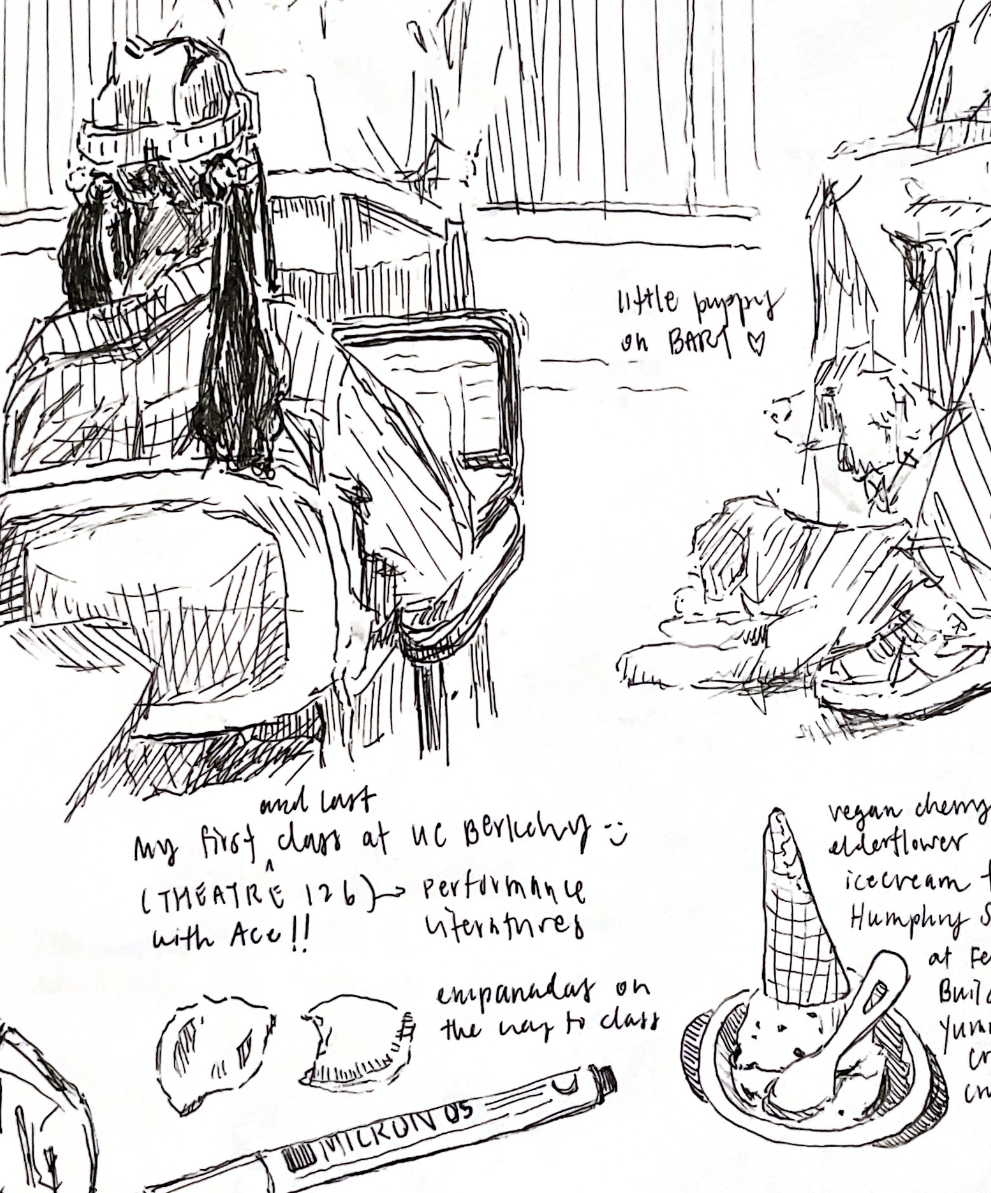 little puppy
on BART ♡
and last
my first ^ class at UC Berkeley :)
(THEATRE 126) → performance
with Ace!! literatures
empanadas on
the way to class
MICRON 05
vegan cherry
elderflower
icecream
Humphry S
at Fe
Buil
yum
cr